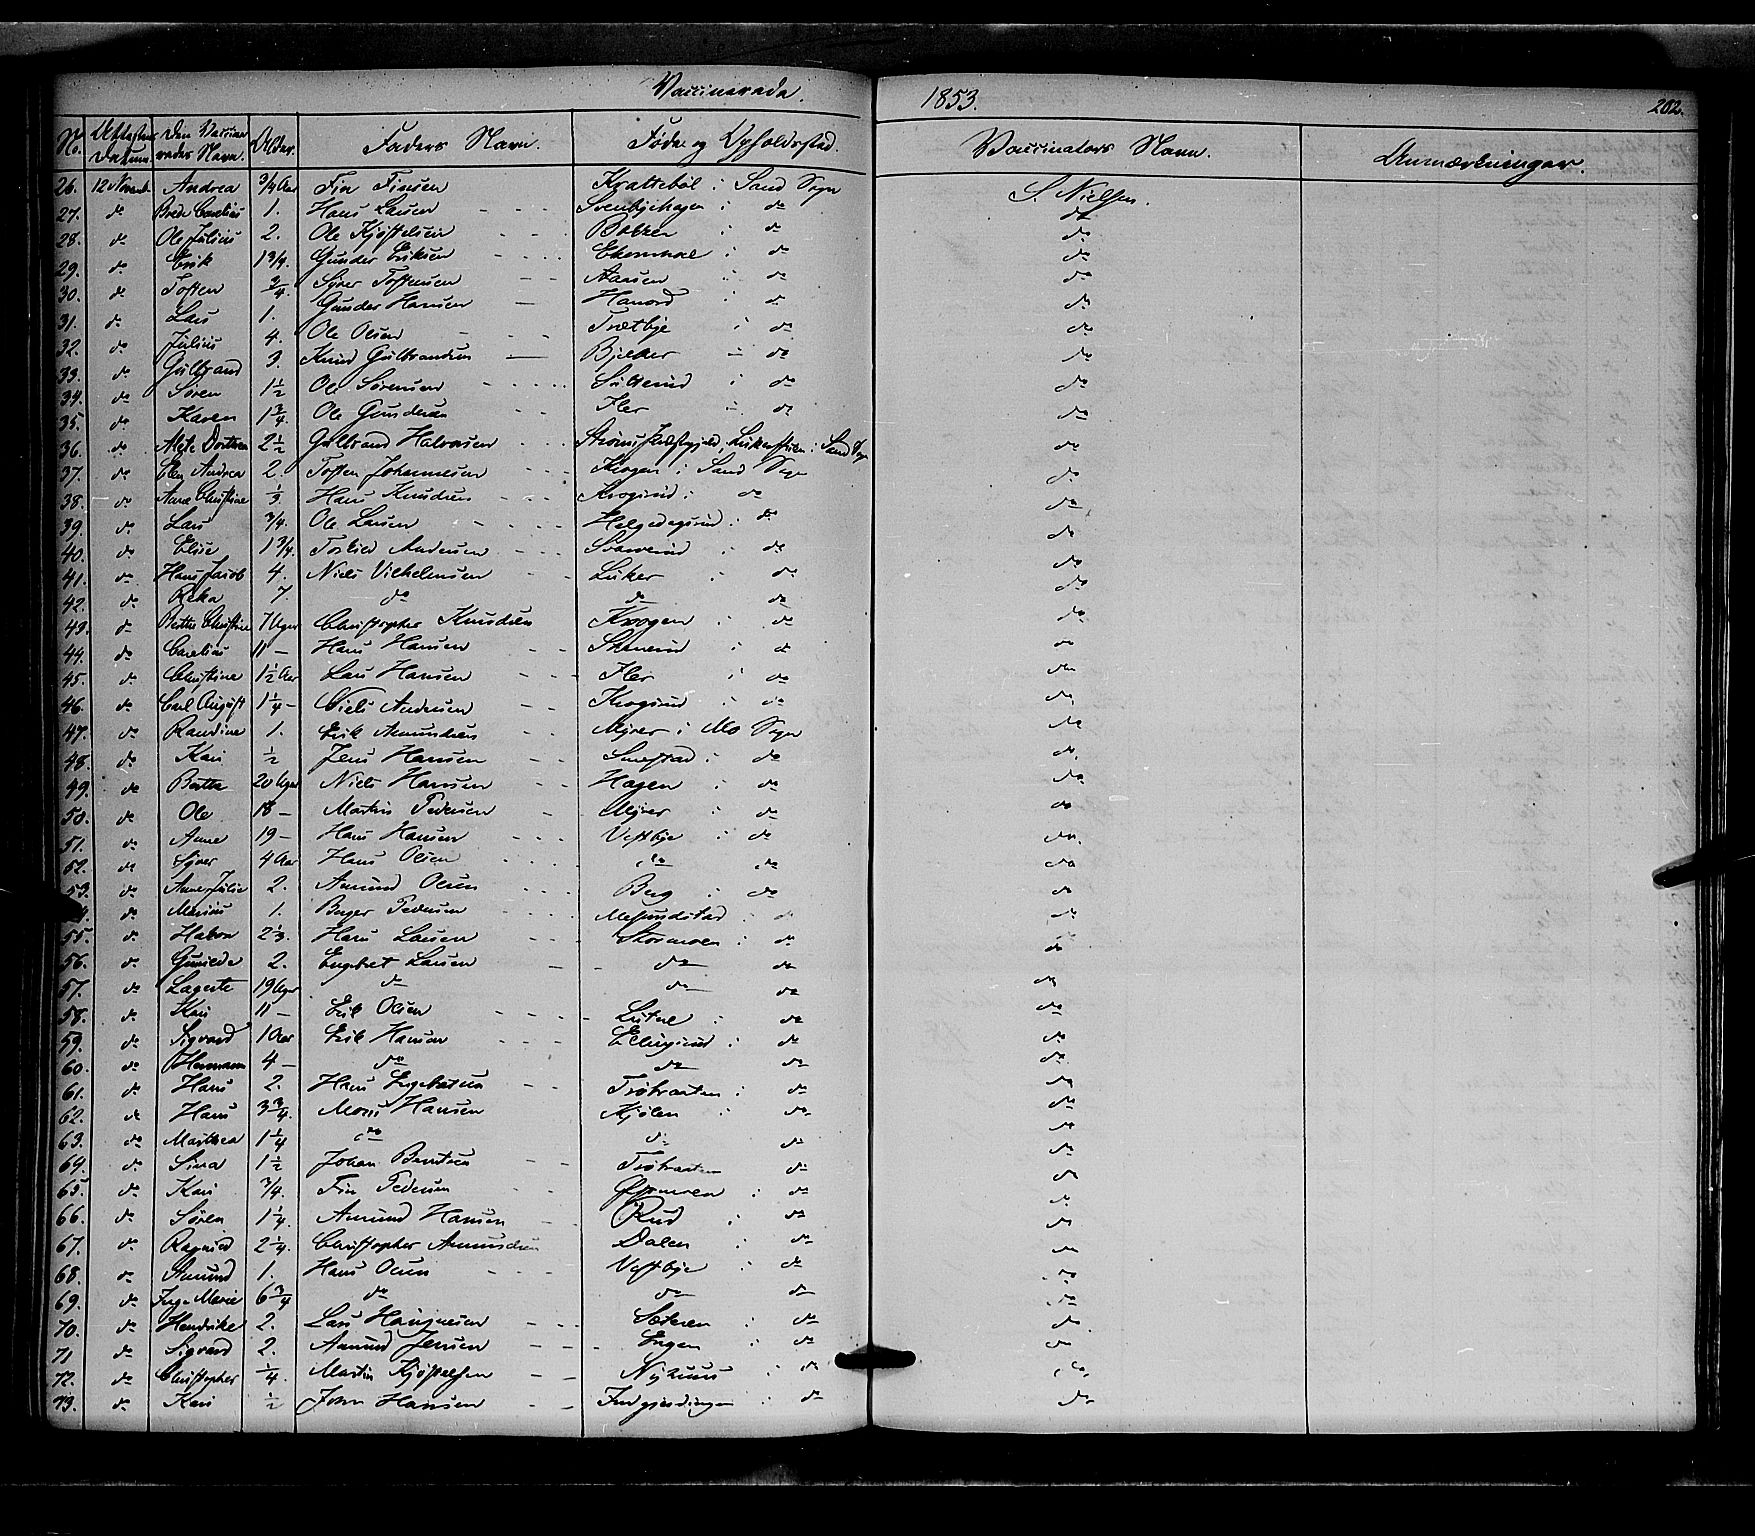 Vaccinerede 1853. 202.
No. Attestens Datum. Den Vaccineredes Navn. Alder. Faders Navn. Føde og Opholdssted. Vaccinators Navn. Anmærkninger.
26. 12 Novemb. Andrea 3/4 Aar Fin Finsen Krattebøl i Sand Sogn S. Nielsen.
27. do Brede Carelius 1. Hans Larsen Svenbyehagen i do do
28. do Ole Julius 2. Ole Kjøstelsen Bakken i do do
29. do Erik 1 3/4. Gunder Eriksen i do do
30. do Tosten 3/4. Syver Tostensen Aaasen i do do
31. do Lars 1. Gunder Hansen i do do
32. do Julius 4. Ole Olsen Tretbye i do do
33. do Gulbrand 3. Knud Gulbrandsen Bjelker i do do
34. do Søren 1 1/2 Ole Sørensen i do do
35. do Karen 1 3/4. Ole Gundersen Fler i do do
36. do Alete Dorthea 2 1/2 Gulbrand Halvorsen i Sand Sogn do
37. do Elen Andrea 2. Tosten Johannesen Krogen i Sand Sogn do
38. do Anne Christine 1/3 Hans Knudsen Krogsrud i do do
39. do Lars 3/4. Ole Larsen Helgedagsrud i do do
40. do Elise 1 3/4. Torkild Andersen i do do
41. do Hans Jacob 4. Niels Vilhelmsen Luker i do do
42. do 7. do do do do
43. do Berthe Christine 7 Uger Christopher Knudsen Krogen i do do
44. do Carelius 11 - Hans Hansen i do do
45. do Christine 1 1/2 Aar Lars Hansen Fler i do do
46. do Carl August 1 1/4 - Niels Andersen Krogsrud i do do
47. do Randine 1. Erik Amundsen Myrer i Mo Sogn do
48. do Kari 1/2 Jens Hansen i do do
49. do Berthe 20 Uger Niels Hansen Hagen i do do
50. do Ole 18 - Martin Pedersen Myrer i do do
51. do Anne 19 - Hans Hansen Vestbye i do do
52. do Syver 4 Aar Hans Olsen do do do
53. do Anne Julie 2. Amund Olsen Berg i do do
do Marius 1. Berger Pedersen i d do
55. do Halvor 2 1/3. Hans Larsen Stormoen i do do
56. do Gunilde 2. Engebret Larsen do do do
57. do 19 Uger do do do do
58. do Kari 11 - Erik Olsen i do do
59. do Sigvard 1 Aar Erik Hansen Ellingsrud i do do
60. do Hermann 4 - do do do do
61. do Hans 2. Hans Engebretsen Trøtraaten i do do
62. do Hans 3 3/4. Mons Hansen Kjølen i do do
63. do Marthea 1 1/4 do do do do
64. do Sina 1 1/2 Johan Berntsen Trøtraaten do do
65. do Kari 3/4. Fin Pedersen i do do
66. do Søren 1 1/4. Amund Hansen Rud i do do
67. do Ragnild 2 1/4. Christopher Amundsen Dalen i do do
68. do Amund 1. Hans Olsen Vestbye i do do
69. do Inge Marie 6 3/4 do do do do
70. do Hendrike 2. Lars Haagensen Sæteren i do do
71 do Sigvard 2. Amund Jensen Engen i do do
72. do Christopher 1/4 Martin Kjøstelsen Nyhuus i do do
73. do Kari 1/2 John Hansen i do do